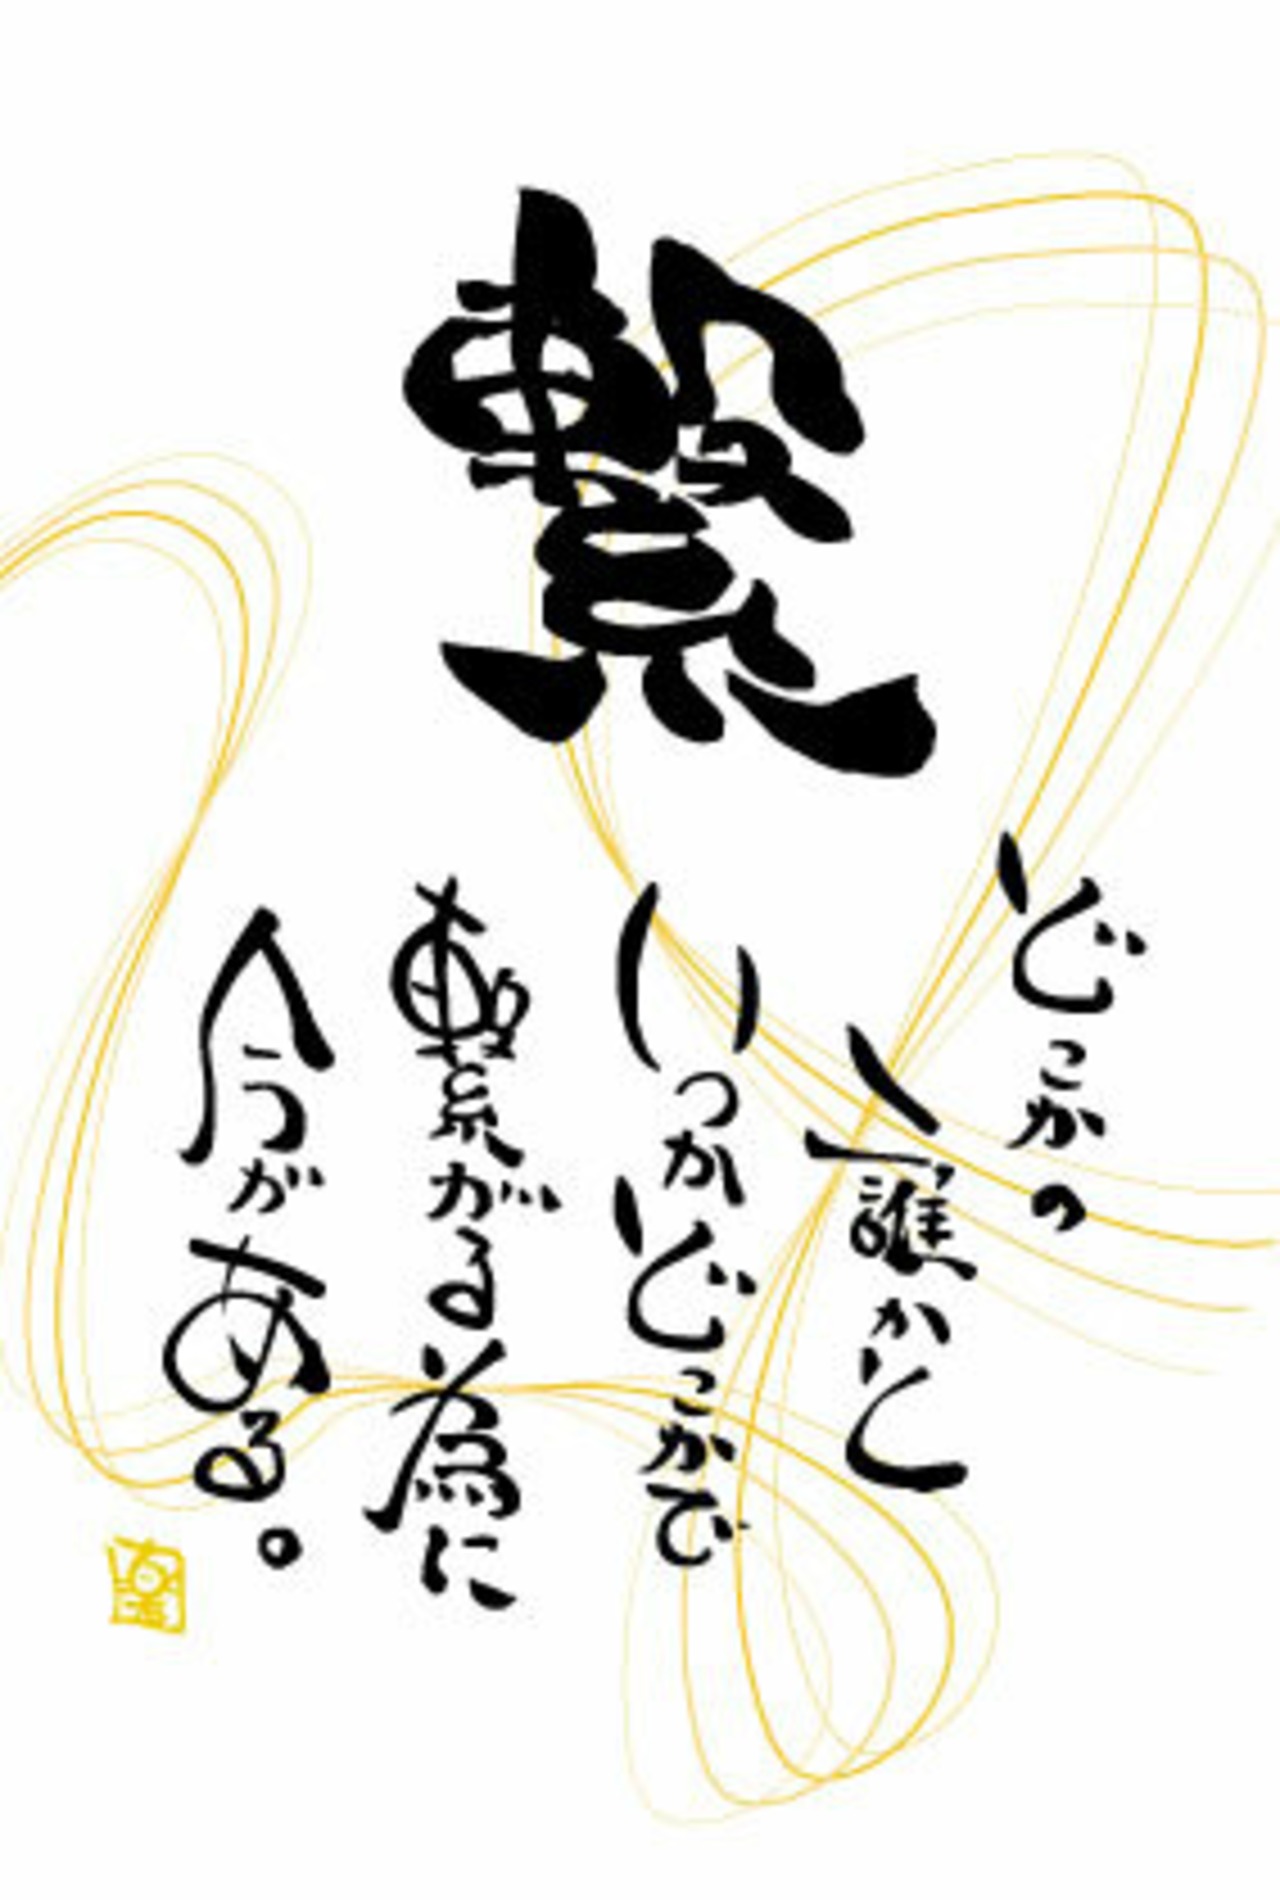 繋
どこかの
誰かと
いつかどこかで
繋がる為に
今がある。